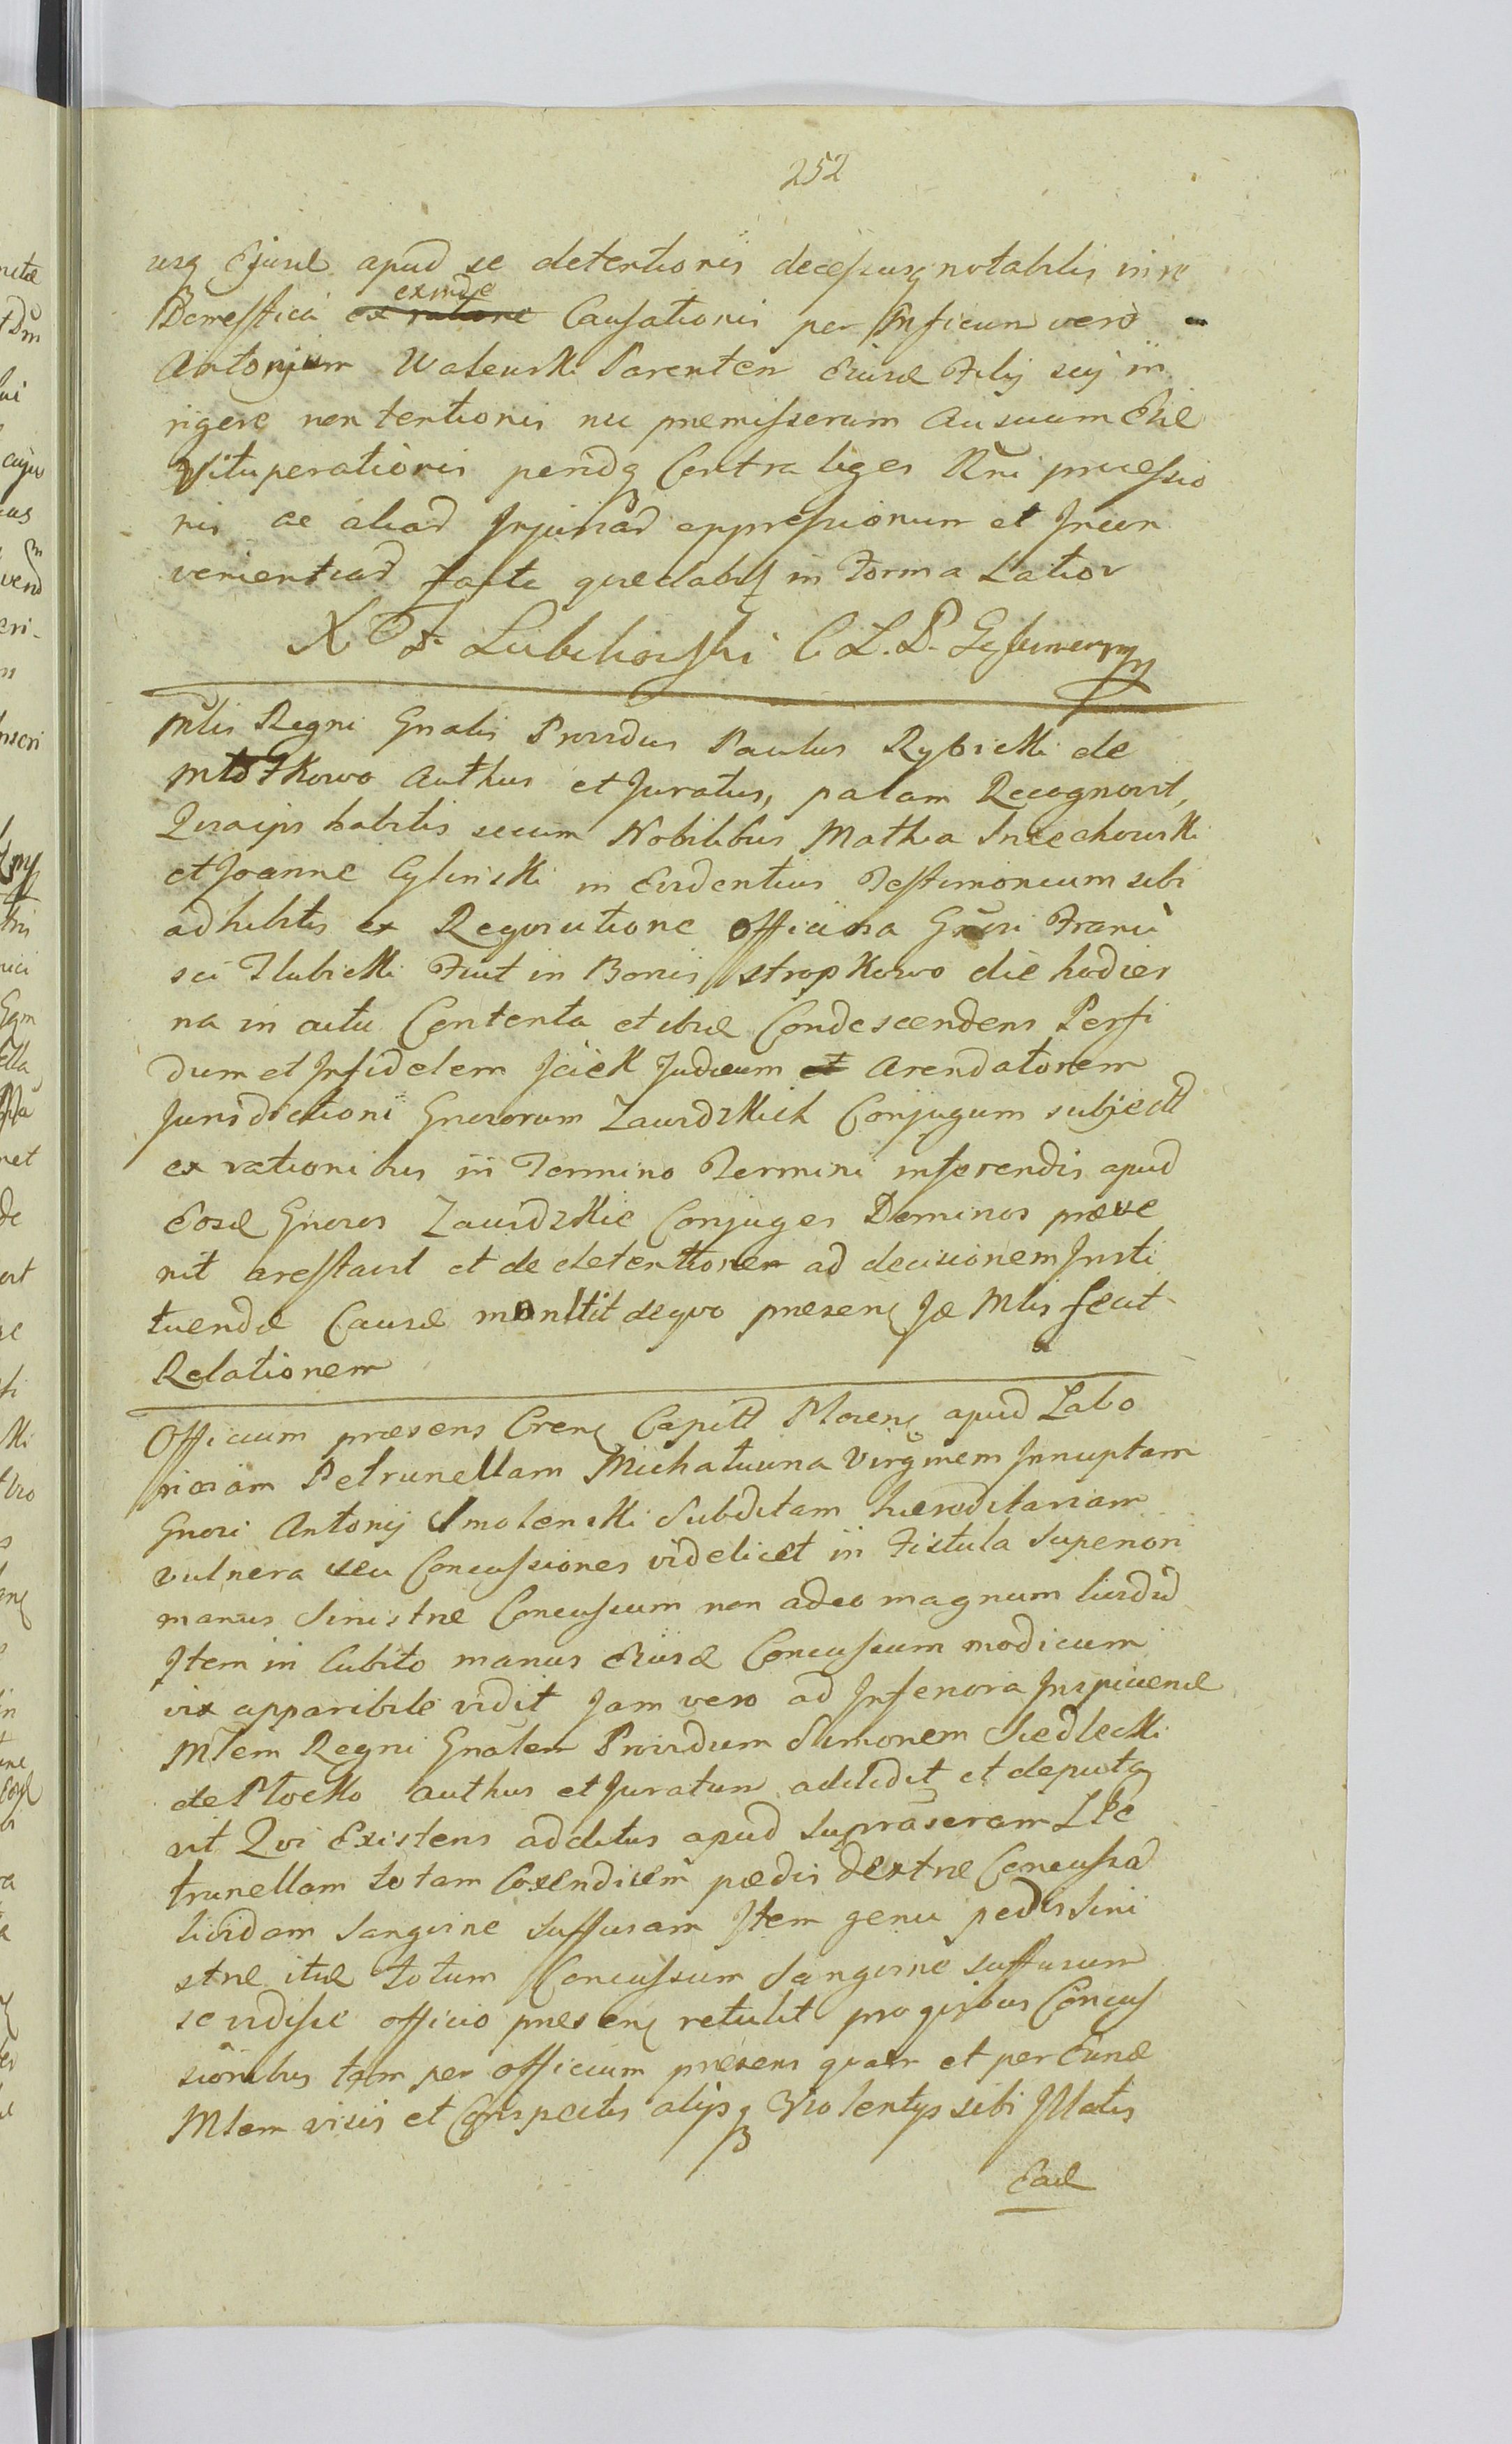 252
usq Ejusd apud se detentionis decessusq notabilis in re
Domestica exinde ex ratione Causationis per Insicum vero
Antonium Walewski Parentem Eiusd Filij sui in
rigere non tentionis nec premissorum ausuum Ehd
Vituperationis pendq Contra leges Rni processio
nis ac aliad Injuriad oppressionum et Incon
venientiad facte quedabs in Forma Latior
X. F. Lubichowski C L. P. Gssinensmpp
Mlis Regni Gnalis Providus Paulus Rybicki de
Młodzkowo authus et Juratus, palam Recognovit,
Quaips habitis secum Nobilibus Mathia Sniechowski
et Joanne Cylinski in Evidentius Testimonium sibi
adhibitis ex Requisitione officiosa Gnosi Franci
sci Hubicki Fuit in Bonis Stropkowo die hodier
na in actu Contenta et ibid Condescendens Perfi
dum et Infidelem Icick Judaeum et Arendatorem
Jurisdictioni Gnosorum Zawidzkich Conjugum subject
ex rationibus in Termino Termini inferendis apud
Eosd Gnosos Zawidzkie Conjuges Dominos præve
nit arestavit et de detentione ad decisionem Insti
tuendæ Causæ monitit de quo presens Je Mlis fecit
Relationem
Officium præsens Crens Capitt Plocens apud Labo
riosam Petrunellam Michałuwna Virginem Innuptam
Gnosi Antonij Smolenski Subditam hæreditariam
vulnera seu Concussiones videlicet in Fistula Superiori
manus Sinistræ Concussum non adeo magnum lividũ
Item in Cubito manus Eiusd Concussum modicum
vix apparibile vidit Jam vero ad Inferiora Inspiciend
Mlem Regni Gnalem Providum Simonem Siedlecki
de Plocko authus et Juratum addidit et deputa
vit Qui Existens additus apud supraseram Pe
trunellam totam Coxendicem pedis dextræ Concussad
lividam sanguine suffusam Item genu pedis sini
stræ itid totum Concussum sanguine suffusum
se vidisse officio presens retulit pro quibus Concus
sionibus tam per officium presens quam et per Eund
Mlem visis et Conspectis alijsq Violentys sibi Illatis
Ead